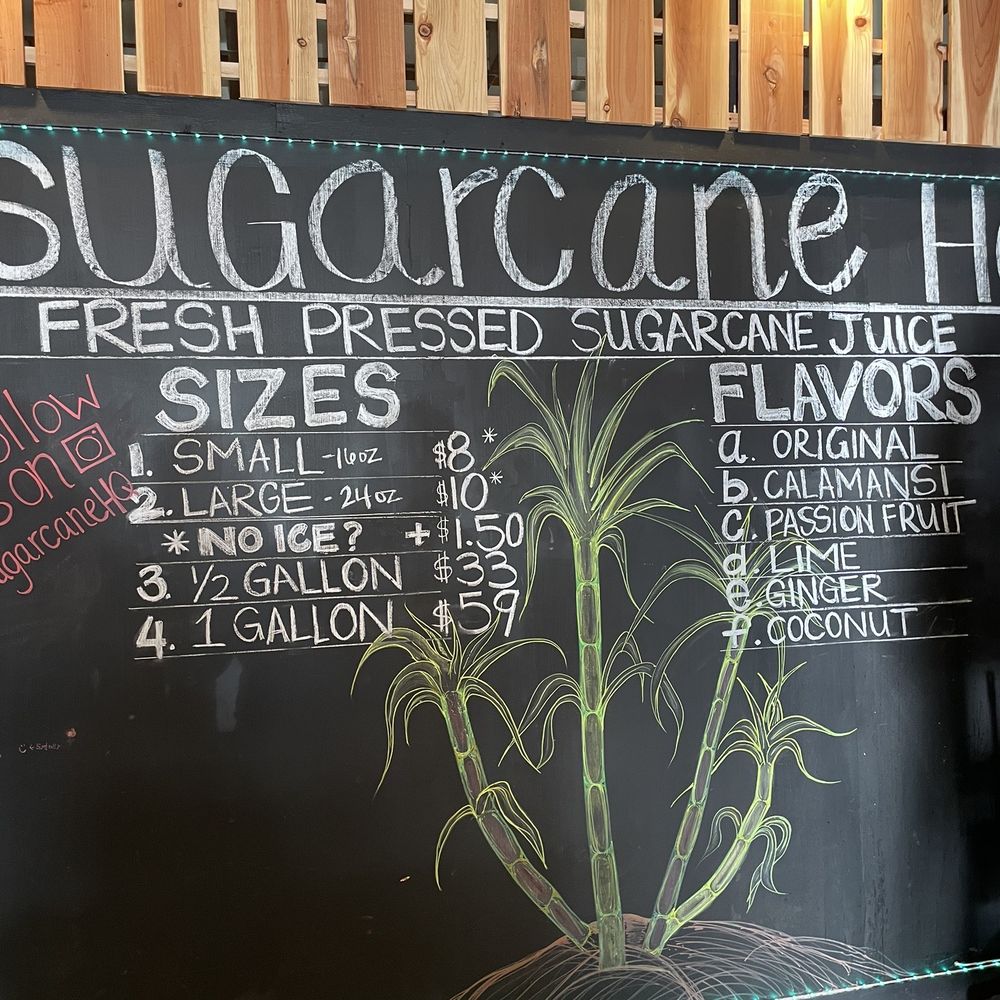 SUGARcane H
FRESH PRESSED SUGARCANE JUICE
SIZES
1. SMALL -16oz $8*
2. LARGE - 24oz $10*
* NO ICE? + $1.50
3. 1/2 GALLON $33
4. 1 GALLON $59
FLAVORS
a. ORIGINAL
b. CALAMANSI
c. PASSION FRUIT
d. LIME
e. GINGER
f. COCONUT
ollow
s on
ugarcaneHQ